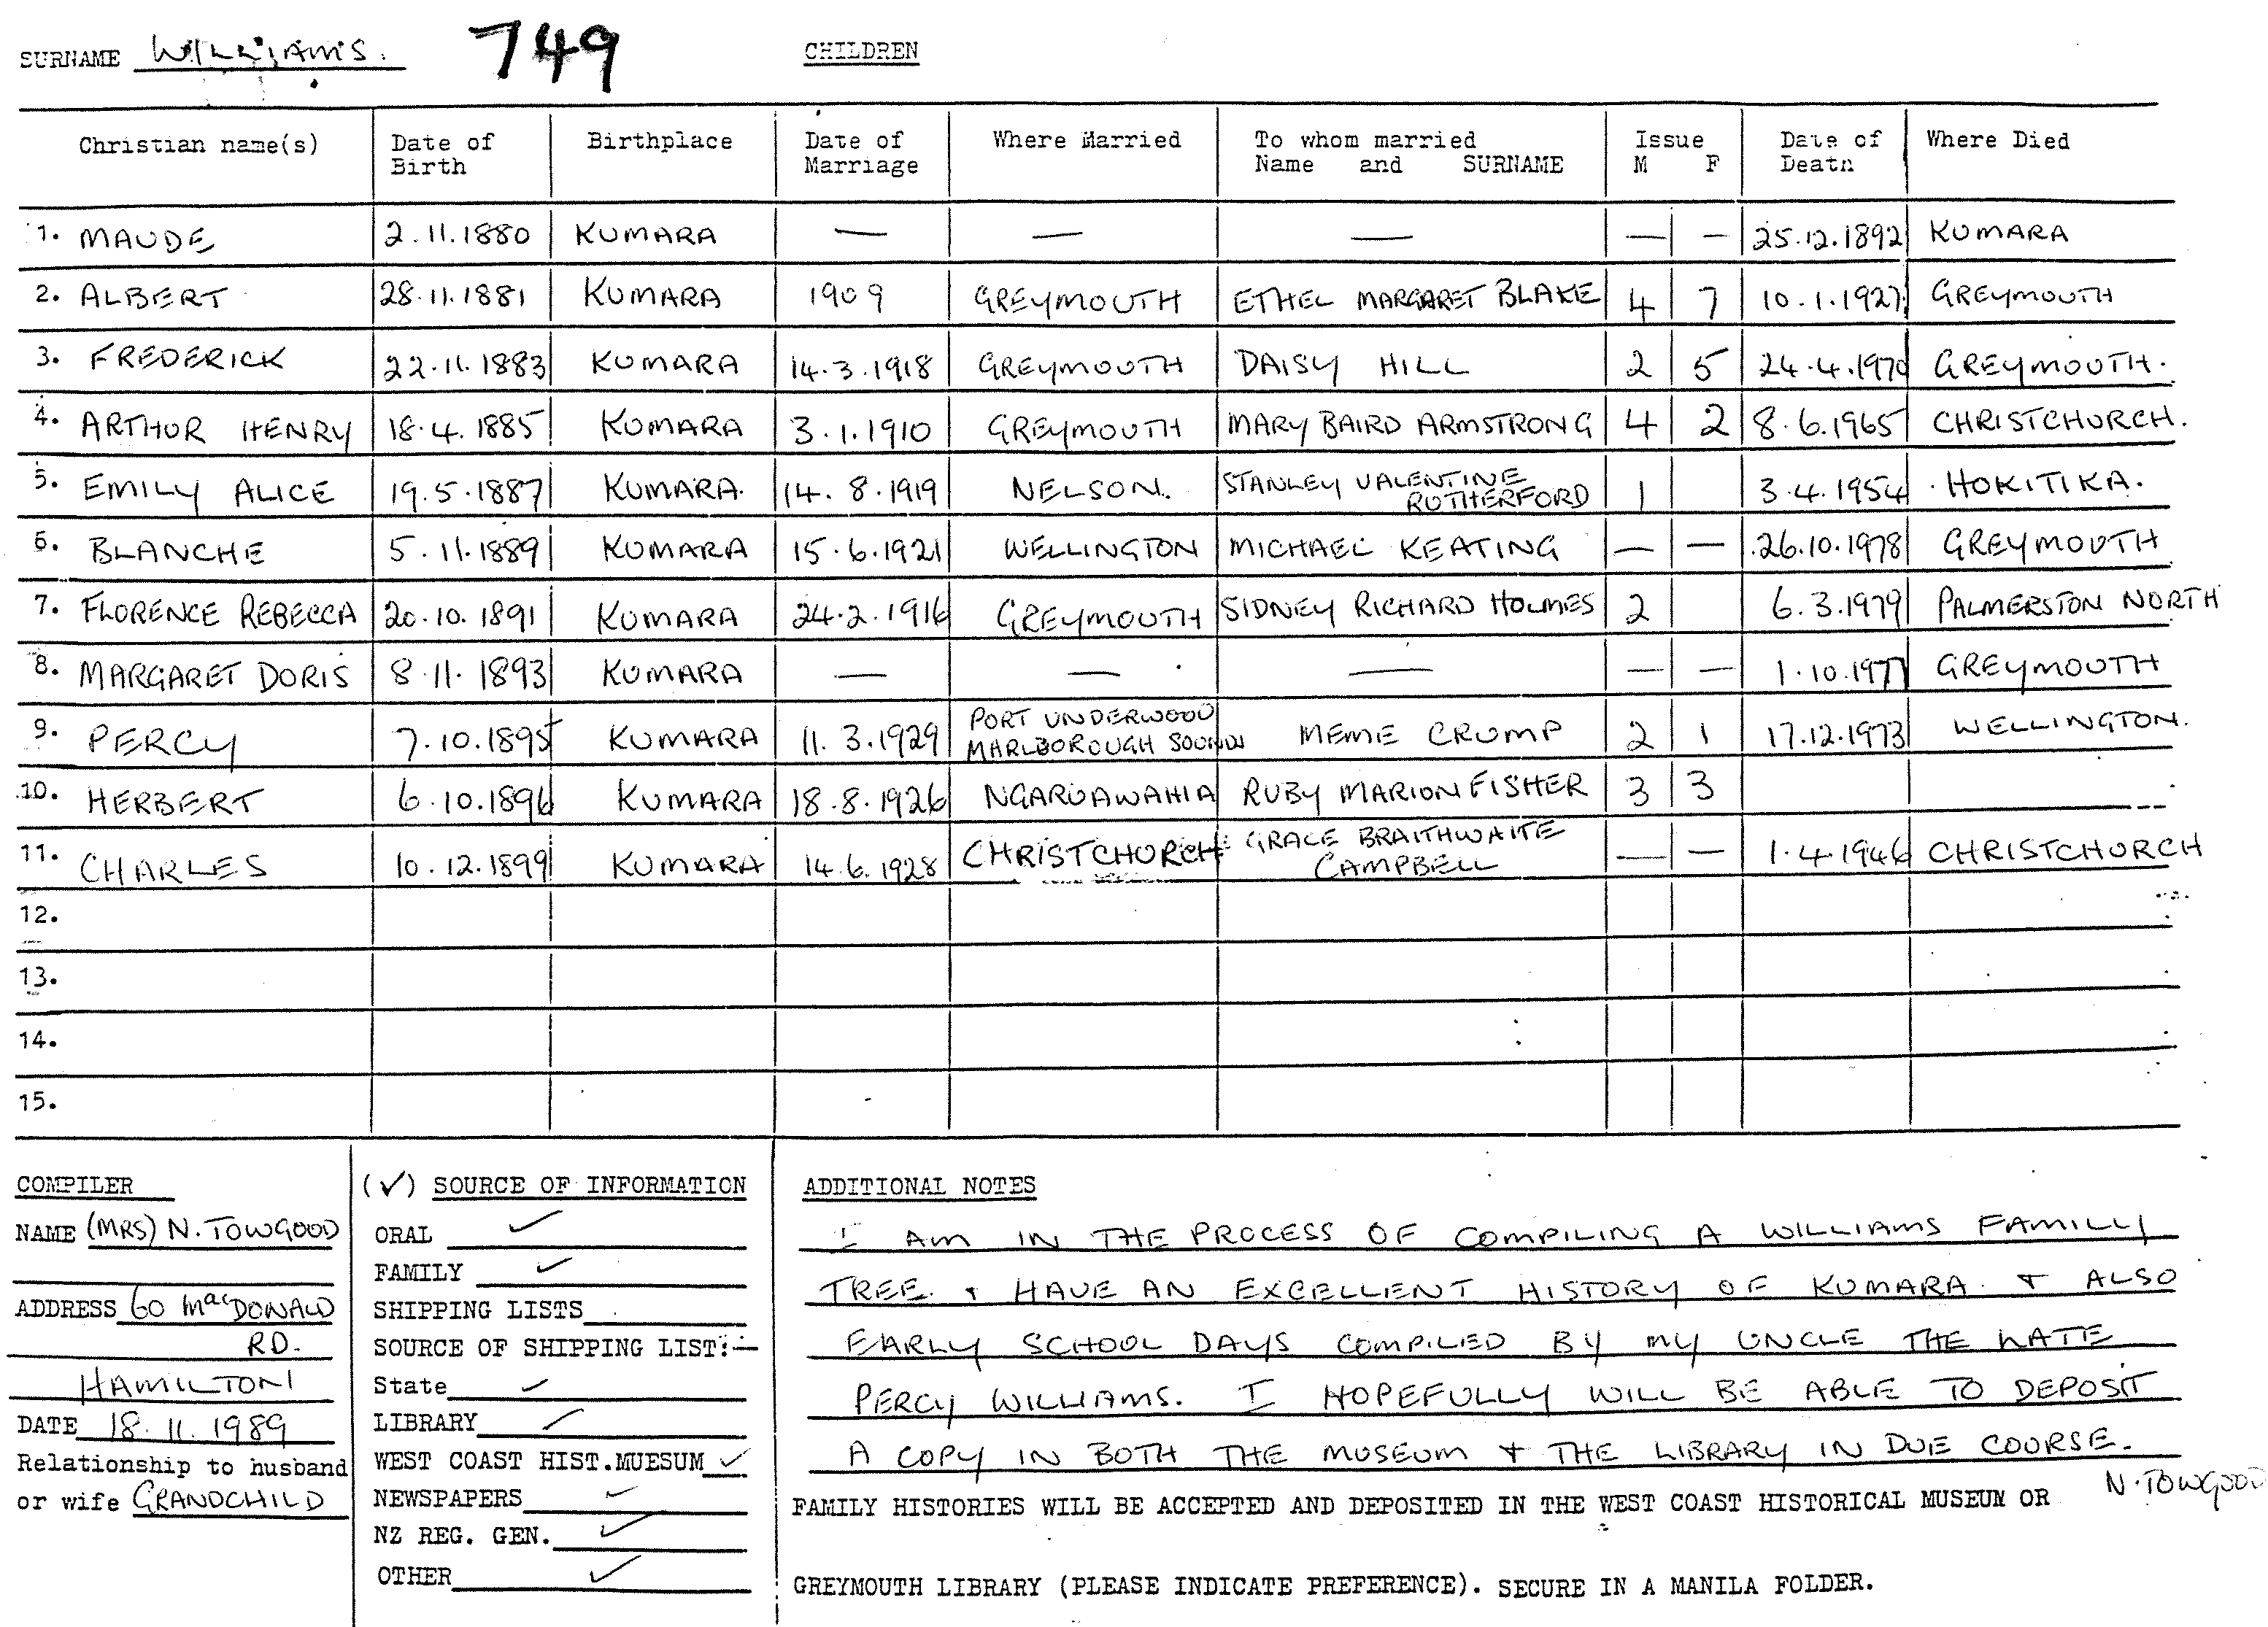 SURNAME WILLIAMS. 749 CHILDREN
Christian name(s) Date of Birth Birthplace Date of Marriage Where Married To whom married Name and SURNAME Issue M F Date of Death Where Died
1. MAUDE 2.11.1880 KUMARA — — — — — 25.12.1892 KUMARA
2. ALBERT 28.11.1881 KUMARA 1909 GREYMOUTH ETHEL MARGARET BLAKE 4 7 10.1.1927 GREYMOUTH
3. FREDERICK 22.11.1883 KUMARA 14.3.1918 GREYMOUTH DAISY HILL 2 5 24.4.1970 GREYMOUTH.
4. ARTHUR HENRY 18.4.1885 KUMARA 3.1.1910 GREYMOUTH MARY BAIRD ARMSTRONG 4 2 8.6.1965 CHRISTCHURCH.
5. EMILY ALICE 19.5.1887 KUMARA. 14.8.1919 NELSON. STANLEY VALENTINE RUTHERFORD 1 3.4.1954 HOKITIKA.
6. BLANCHE 5.11.1889 KUMARA 15.6.1921 WELLINGTON MICHAEL KEATING — — 26.10.1978 GREYMOUTH
7. FLORENCE REBECCA 20.10.1891 KUMARA 24.2.1916 GREYMOUTH SIDNEY RICHARD HOLMES 2 6.3.1979 PALMERSTON NORTH
8. MARGARET DORIS 8.11.1893 KUMARA — — — — — 1.10.1977 GREYMOUTH
9. PERCY 7.10.1895 KUMARA 11.3.1929 PORT UNDERWOOD MARLBOROUGH SOUNDS MEME CRUMP 2 1 17.12.1973 WELLINGTON.
10. HERBERT 6.10.1896 KUMARA 18.8.1926 NGARUAWAHIA RUBY MARION FISHER 3 3
11. CHARLES 10.12.1899 KUMARA 14.6.1928 CHRISTCHURCH GRACE BRAITHWAITE CAMPBELL — — 1.4.1946 CHRISTCHURCH
12.
13.
14.
15.
COMPILER
NAME (MRS) N. TOWGOOD
ADDRESS 60 MacDONALD
RD.
HAMILTON
DATE 18.11.1989
Relationship to husband
or wife GRANDCHILD
(✓) SOURCE OF INFORMATION
ORAL ✓
FAMILY ✓
SHIPPING LISTS
SOURCE OF SHIPPING LIST:—
State ✓
LIBRARY ✓
WEST COAST HIST.MUESUM ✓
NEWSPAPERS ✓
NZ REG. GEN. ✓
OTHER ✓
ADDITIONAL NOTES
I AM IN THE PROCESS OF COMPILING A WILLIAMS FAMILLY
TREE. & HAVE AN EXCELLENT HISTORY OF KUMARA & ALSO
EARLY SCHOOL DAYS COMPILED BY MY UNCLE THE LATE
PERCY WILLIAMS. I HOPEFULLY WILL BE ABLE TO DEPOSIT
A COPY IN BOTH THE MUSEUM & THE LIBRARY IN DUE COURSE.
N. TOWGOOD
FAMILY HISTORIES WILL BE ACCEPTED AND DEPOSITED IN THE WEST COAST HISTORICAL MUSEUM OR
GREYMOUTH LIBRARY (PLEASE INDICATE PREFERENCE). SECURE IN A MANILA FOLDER.